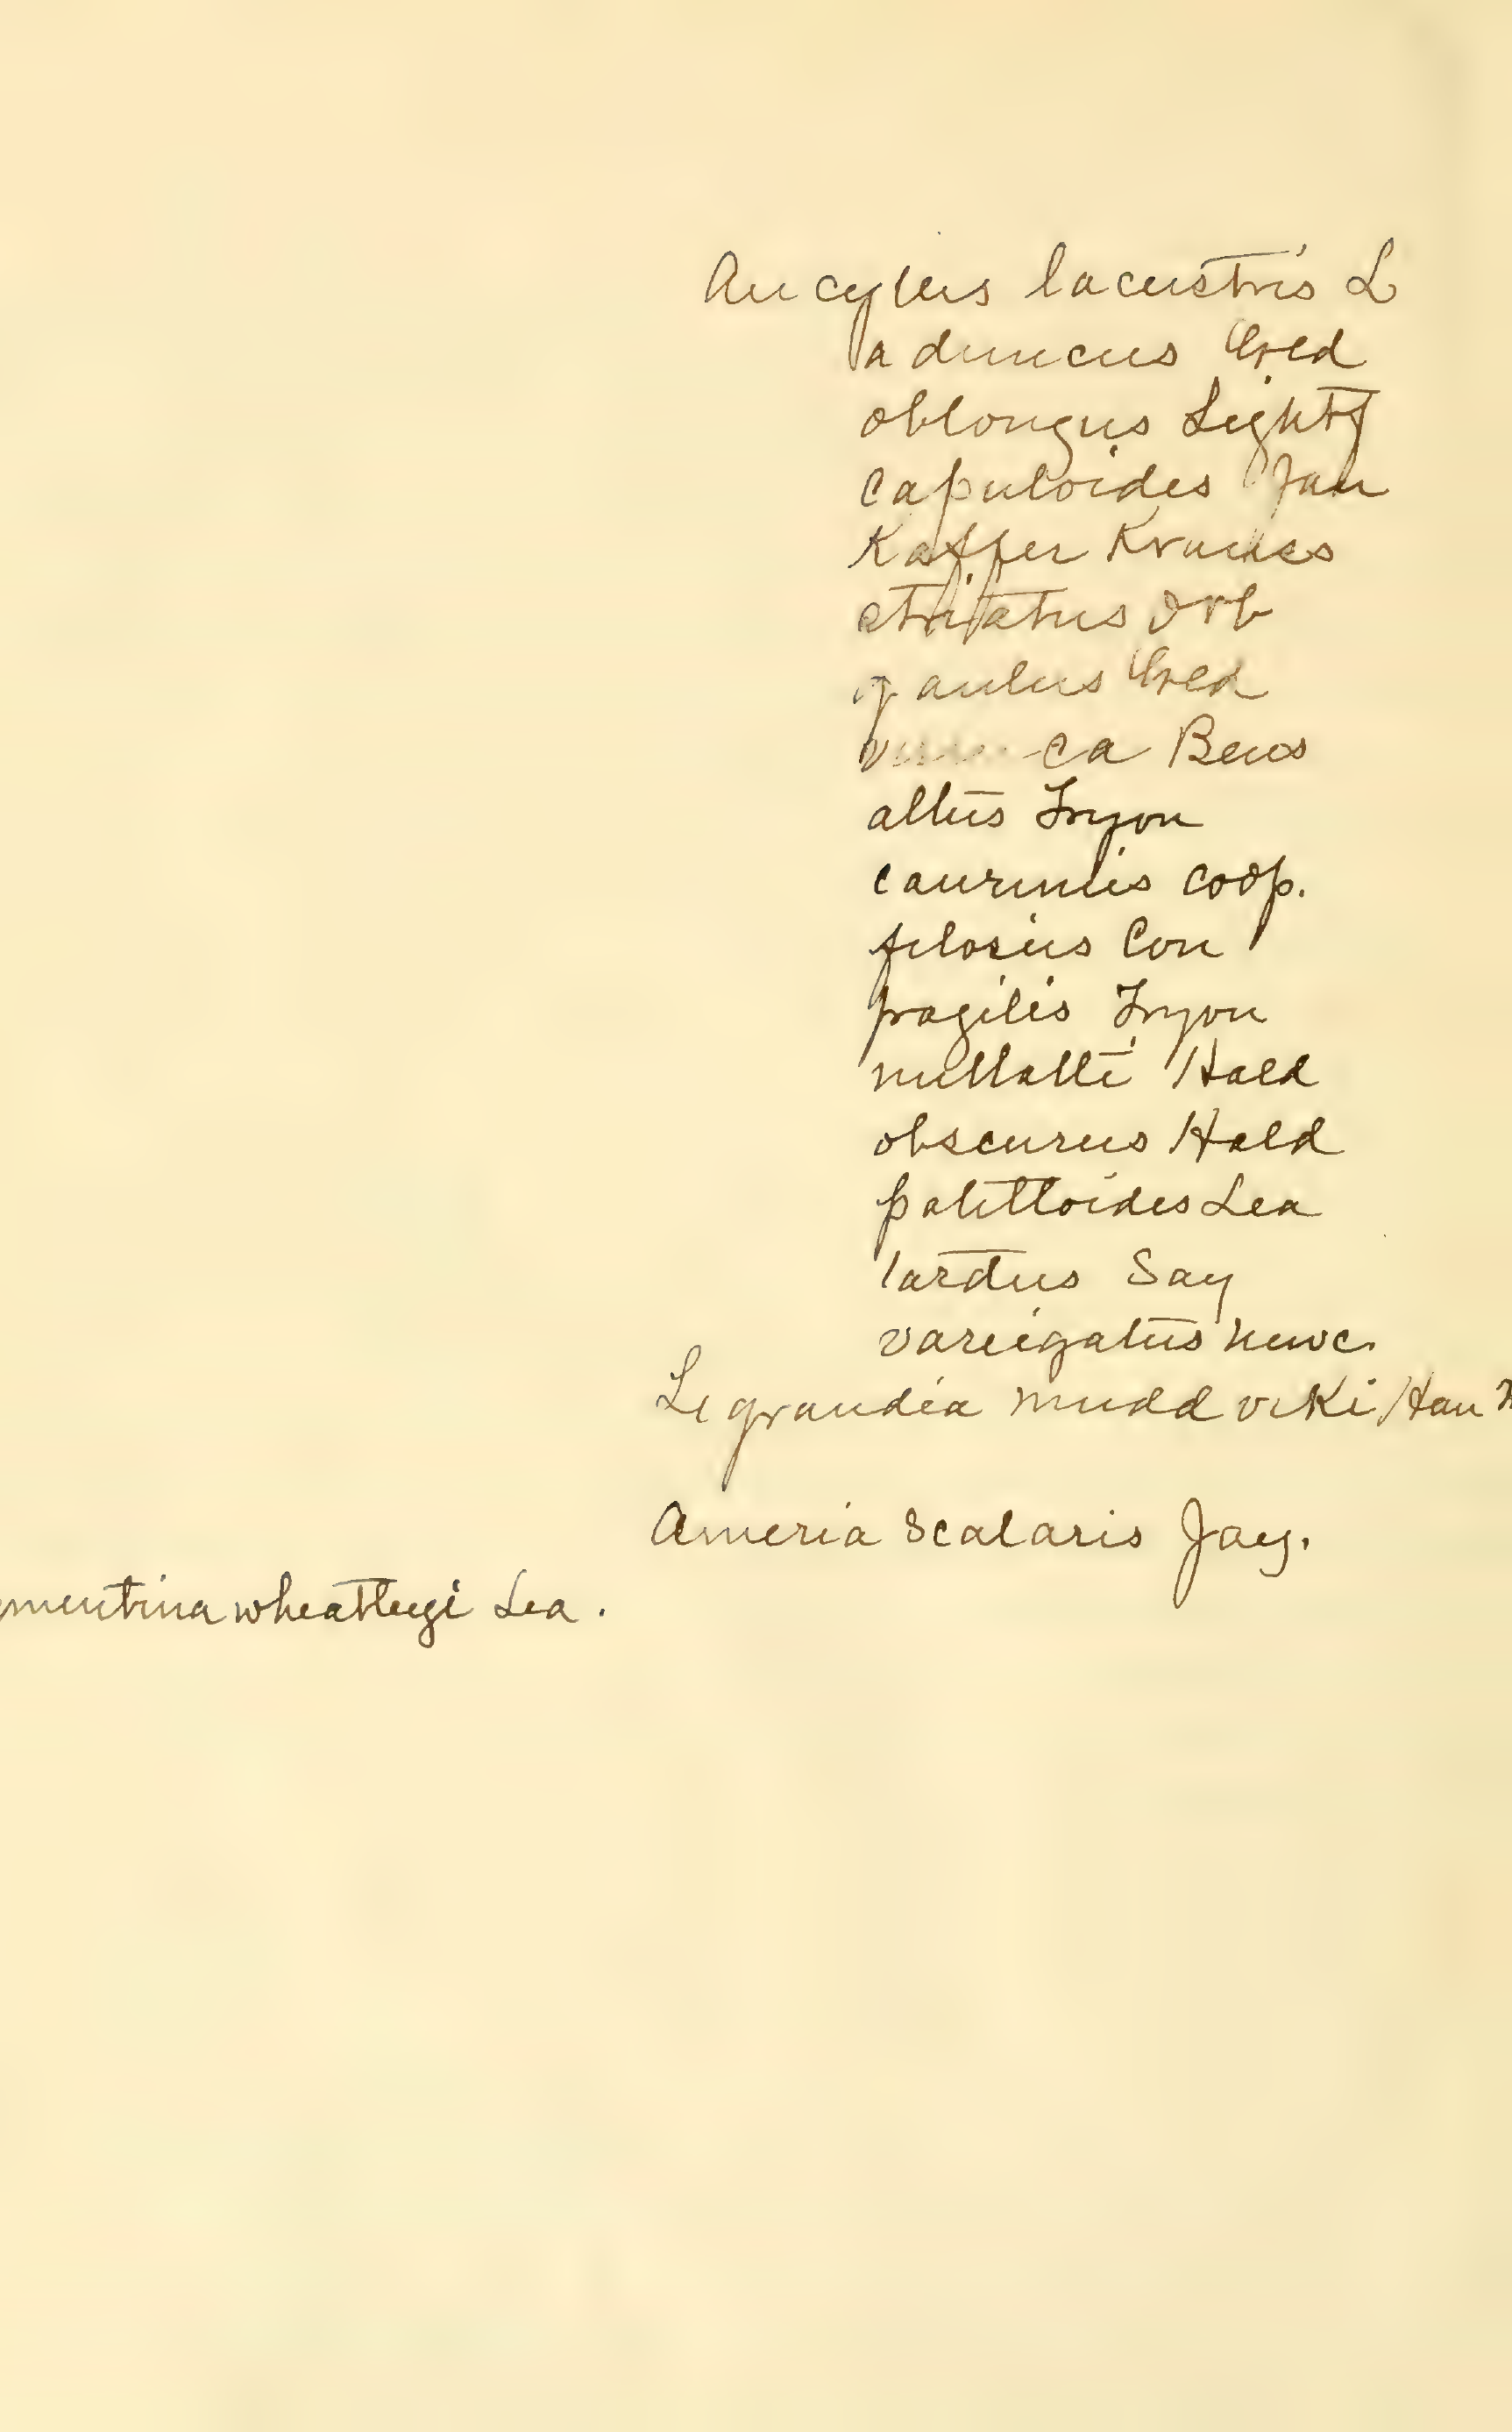 Ancylus lacustris L
aduncus Gred
oblongus Lightf
capuloides Jan
Kaffer Krauss
striatus Orb
Gred
ca Bens
altus Tryon
caurinus coop.
filosus Con
fragilis Tryon
nuttalli Hald
obscurus Hald
patelloides Lea
tardus Say
variegatus newc.
Legrandia Han
Ameria scalaris Jay.
mentina wheatleyi Lea.